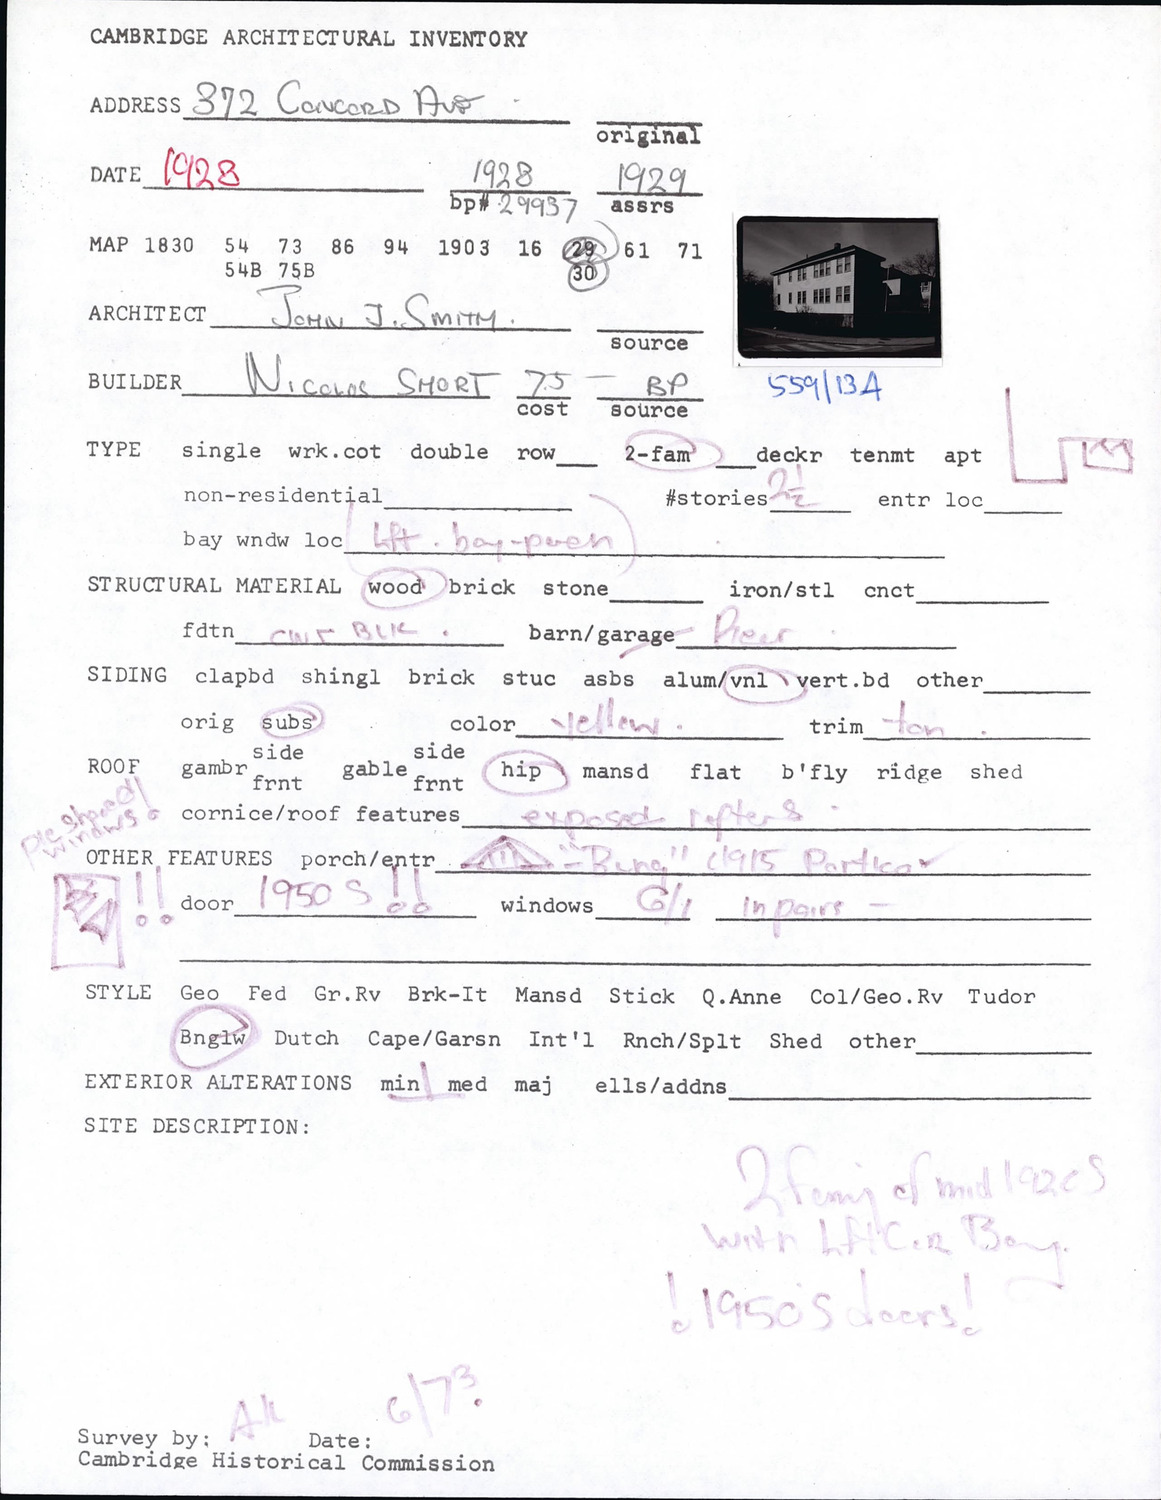 CAMBRIDGE ARCHITECTURAL INVENTORY
ADDRESS 372 CONCORD AVE
original
DATE 1928 1928 1929
bp# 29937 assrs
MAP 1830 54 73 86 94 1903 16 29 61 71
54B 75B 30
ARCHITECT JOHN J. SMITH.
source
BUILDER NICOLAS SHORT 75 — BP
cost source
559/13A
TYPE single wrk.cot double row 2-fam deckr tenmt apt
non-residential #stories 2½ entr loc
bay wndw loc Lft. bay-porch
STRUCTURAL MATERIAL wood brick stone iron/stl cnct
fdtn BLK. barn/garage Rear
SIDING clapbd shingl brick stuc asbs alum/vnl vert.bd other
orig subs color yellow. trim tan.
side side
ROOF gambr gable hip mansd flat b'fly ridge shed
frnt frnt
cornice/roof features exposed rafters
pie shaped windows!
OTHER FEATURES porch/entr "Bung" c1915 Portico
!! door 1950s!! windows 6/1 in pairs —
STYLE Geo Fed Gr.Rv Brk-It Mansd Stick Q.Anne Col/Geo.Rv Tudor
Bnglw Dutch Cape/Garsn Int'l Rnch/Splt Shed other
EXTERIOR ALTERATIONS min med maj ells/addns
SITE DESCRIPTION:
2 famy of mid 1920s
with Lft Bay.
! 1950's doors!
AK 6/73.
Survey by: Date:
Cambridge Historical Commission